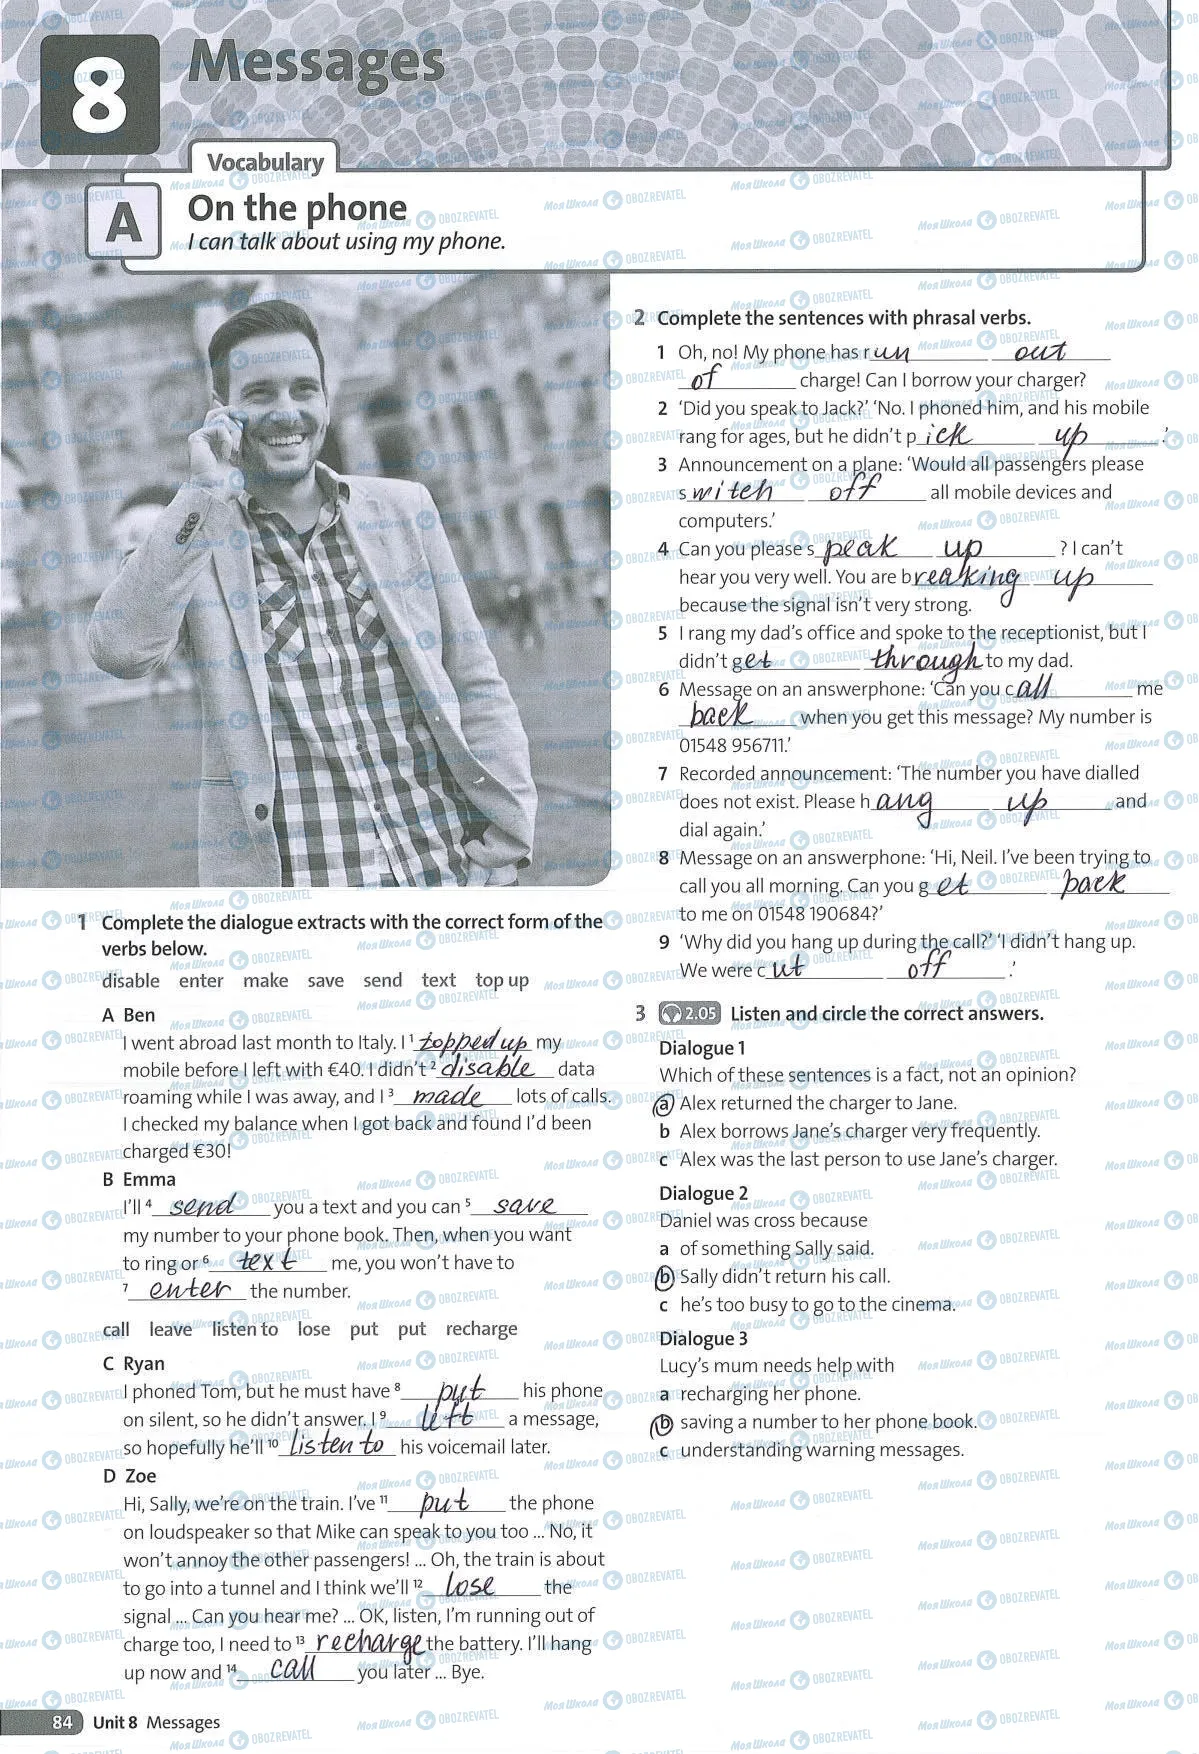 8
Messages
Vocabulary
A
On the phone
I can talk about using my phone.
1 Complete the dialogue extracts with the correct form of the
verbs below.
disable enter make save send text top up
A Ben
I went abroad last month to Italy. I ¹ topped up my
mobile before I left with €40. I didn't ² disable data
roaming while I was away, and I ³ made lots of calls.
I checked my balance when I got back and found I'd been
charged €30!
B Emma
I'll ⁴ send you a text and you can ⁵ save
my number to your phone book. Then, when you want
to ring or ⁶ text me, you won't have to
⁷ enter the number.
call leave listen to lose put put recharge
C Ryan
I phoned Tom, but he must have ⁸ put his phone
on silent, so he didn't answer. I ⁹ left a message,
so hopefully he'll ¹⁰ listen to his voicemail later.
D Zoe
Hi, Sally, we're on the train. I've ¹¹ put the phone
on loudspeaker so that Mike can speak to you too ... No, it
won't annoy the other passengers! ... Oh, the train is about
to go into a tunnel and I think we'll ¹² lose the
signal ... Can you hear me? ... OK, listen, I'm running out of
charge too, I need to ¹³ recharge the battery. I'll hang
up now and ¹⁴ call you later ... Bye.
2 Complete the sentences with phrasal verbs.
1 Oh, no! My phone has run out
of charge! Can I borrow your charger?
2 'Did you speak to Jack?' 'No. I phoned him, and his mobile
rang for ages, but he didn't pick up.'
3 Announcement on a plane: 'Would all passengers please
switch off all mobile devices and
computers.'
4 Can you please speak up? I can't
hear you very well. You are breaking up
because the signal isn't very strong.
5 I rang my dad's office and spoke to the receptionist, but I
didn't get through to my dad.
6 Message on an answerphone: 'Can you call me
back when you get this message? My number is
01548 956711.'
7 Recorded announcement: 'The number you have dialled
does not exist. Please hang up and
dial again.'
8 Message on an answerphone: 'Hi, Neil. I've been trying to
call you all morning. Can you get back
to me on 01548 190684?'
9 'Why did you hang up during the call?' 'I didn't hang up.
We were cut off.'
3 2.05 Listen and circle the correct answers.
Dialogue 1
Which of these sentences is a fact, not an opinion?
a Alex returned the charger to Jane.
b Alex borrows Jane's charger very frequently.
c Alex was the last person to use Jane's charger.
Dialogue 2
Daniel was cross because
a of something Sally said.
b Sally didn't return his call.
c he's too busy to go to the cinema.
Dialogue 3
Lucy's mum needs help with
a recharging her phone.
b saving a number to her phone book.
c understanding warning messages.
84 Unit 8 Messages
МояШкола OBOZREVATEL